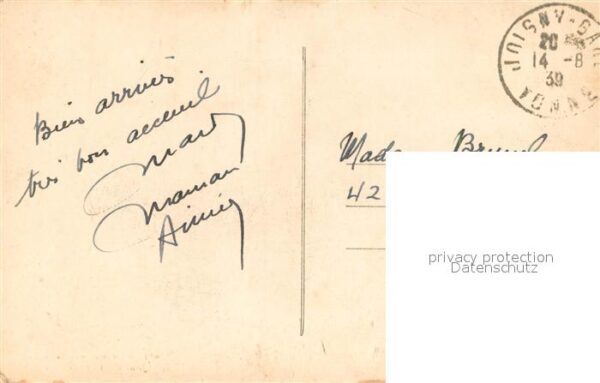 Bien arrivés
très bon accueil
Maman
JUIGNY-GARE
20
14 -8
39
YONNE
Mada
42
privacy protection
Datenschutz